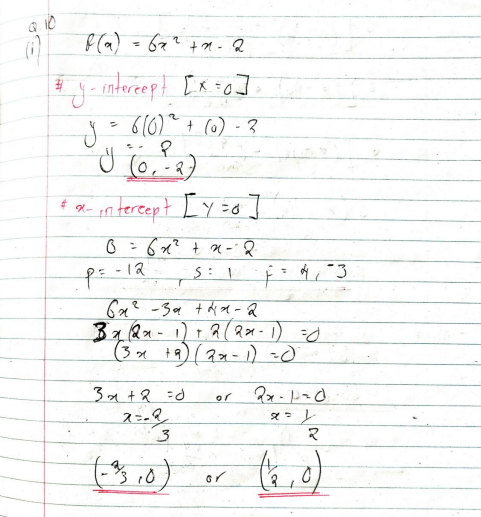 Q 10
(i) f(x) = 6x² + x - 2
# y-intercept [x=0]
y = 6(0)² + (0) - 2
y = - 2
(0, -2)
# x-intercept [Y=0]
0 = 6x² + x - 2
p = -12 , s: 1 f = 4, -3
6x² - 3x + 4x - 2
3x(2x - 1) + 2(2x - 1) = 0
(3x + 2)(2x - 1) = 0
3x + 2 = 0 or 2x - 1 = 0
x = -2/3 x = 1/2
(-2/3, 0) or (1/2, 0)